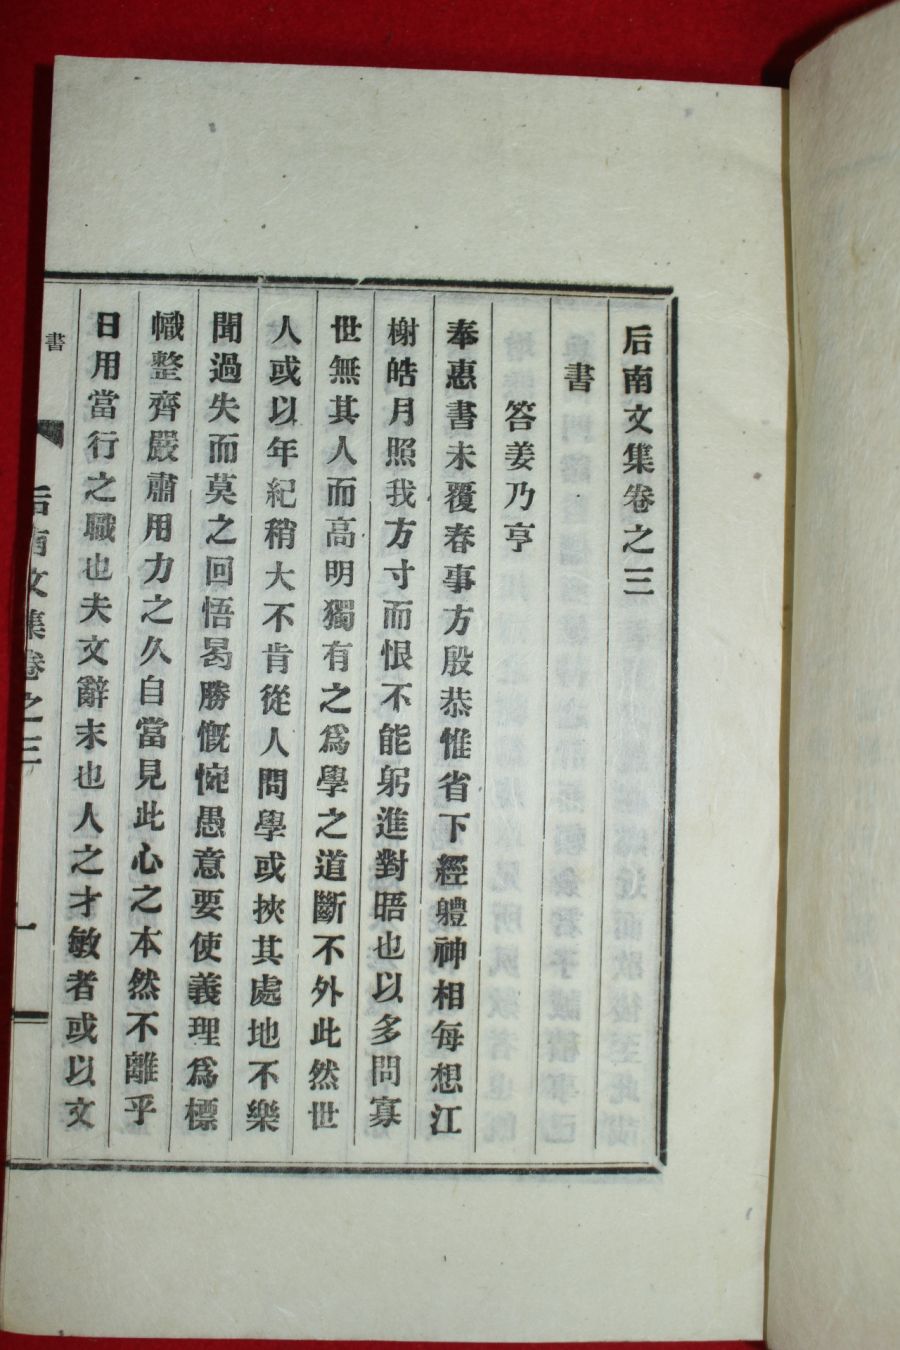 后南文集卷之三
書
答姜乃亨
奉惠書未覆春事方殷恭惟省下經軆神相每想江
榭皓月照我方寸而恨不能躬進對晤也以多問寡
世無其人而高明獨有之爲學之道斷不外此然世
人或以年紀稍大不肯從人問學或挾其處地不樂
聞過失而莫之回悟曷勝慨惋愚意要使義理爲標
幟整齊嚴肅用力之久自當見此心之本然不離乎
日用當行之職也夫文辭末也人之才敏者或以文
書
后南文集卷之三